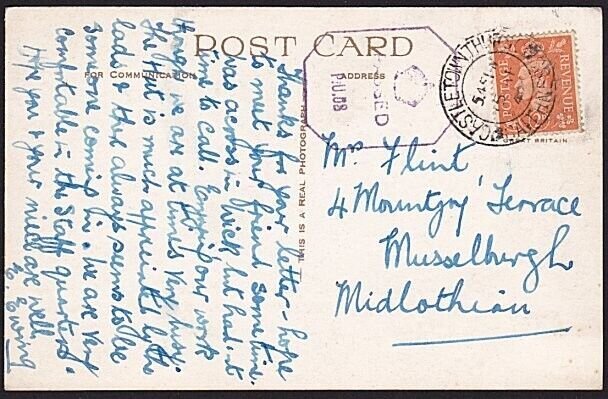 POST CARD
FOR COMMUNICATION
ADDRESS
THIS IS A REAL PHOTOGRAPH
Thanks for your letter – hope
to meet your friend some time.
was across in Wick but hadn't
time to call. Enjoy our work
though we are at times very busy.
The Hut is much appreciated by the
lads & there always seems to be
someone coming in. We are very
comfortable in the Staff quarters.
Hope you & your niece are well.
E. Ewing
Mrs Flint
4 Mountjoy Terrace
Musselburgh
Midlothian
PASSED
POSTAGE
REVENUE
GREAT BRITAIN